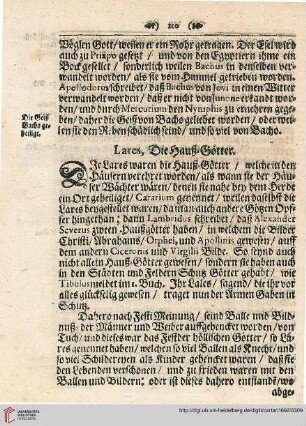 210
Böglen Gott / weilen er ein Rohr getragen. Der Esel wird
auch zu Priapo gesetzt / und von den Egyptiern ihme ein
Bock gesellet / sonderlich weilen Bachus in denselben ver-
wandelt worden / als sie vom Himmel getrieben worden.
Apollodorus schreibet / daß Bachus von Jovi in einen Witter
verwandelt worden / daß er nicht von Junone erkand wor-
den / und durch Mercurium den Nymphis zu erziehen gege-
ben / daher die Geiß von Bacho geliebet worden / oder wei-
len sie den Reben schädlich seind / und so viel von Bacho.
Die Geiß
Bacho ge-
heiliget.
Lares, Die Hauß-Götter.
Die Lares waren die Hauß-Götter / welche in den
Häusern verehret worden / als wann sie der Häu-
ser Wächter wären / denen sie nahe bey dem Herde
ein Ort geheiliget / Lararium genennet / weilen daselbst die
Lares beygesellet waren / dahin auch ander Götzen Opf-
fer hingethan; dann Lambridus schreibet / daß Alexander
Severus zwen Hauß-götter haben / in welchem die Bilder
Christi / Abrahams / Orphei, und Apollinis gewesen / auff
dem andern Ciceronis und Virgilii Bilde. So seynd auch
nicht allein Hauß-Götter gewesen / sondern sie haben auch
in den Städten und Feldern Schutz Götter gehabt / wie
Tibulus meldet im 1. Buch. Ihr Lales / sagend / die ihr vor
alles glückseelig gewesen / traget nun der Armen Gaben in
Schutz.
Dahero nach Festi Meinung / seind Balle und Bild-
nuß / der Männer und Weiber auffgehencket worden / von
Tuch / und dieses war das Fest der höllischen Götter / so La-
res genennet haben / welchen so viel Ballen als Knecht / und
so viel Schildereyen als Kinder gehencket waren / daß sie
den Lebenden verschonen / und zu frieden waren mit den
Ballen und Bildern; oder ist dieses dahero entstanden / wo
abge-
http://digi.ub.uni-heidelberg.de/diglit/cartari1692/0309